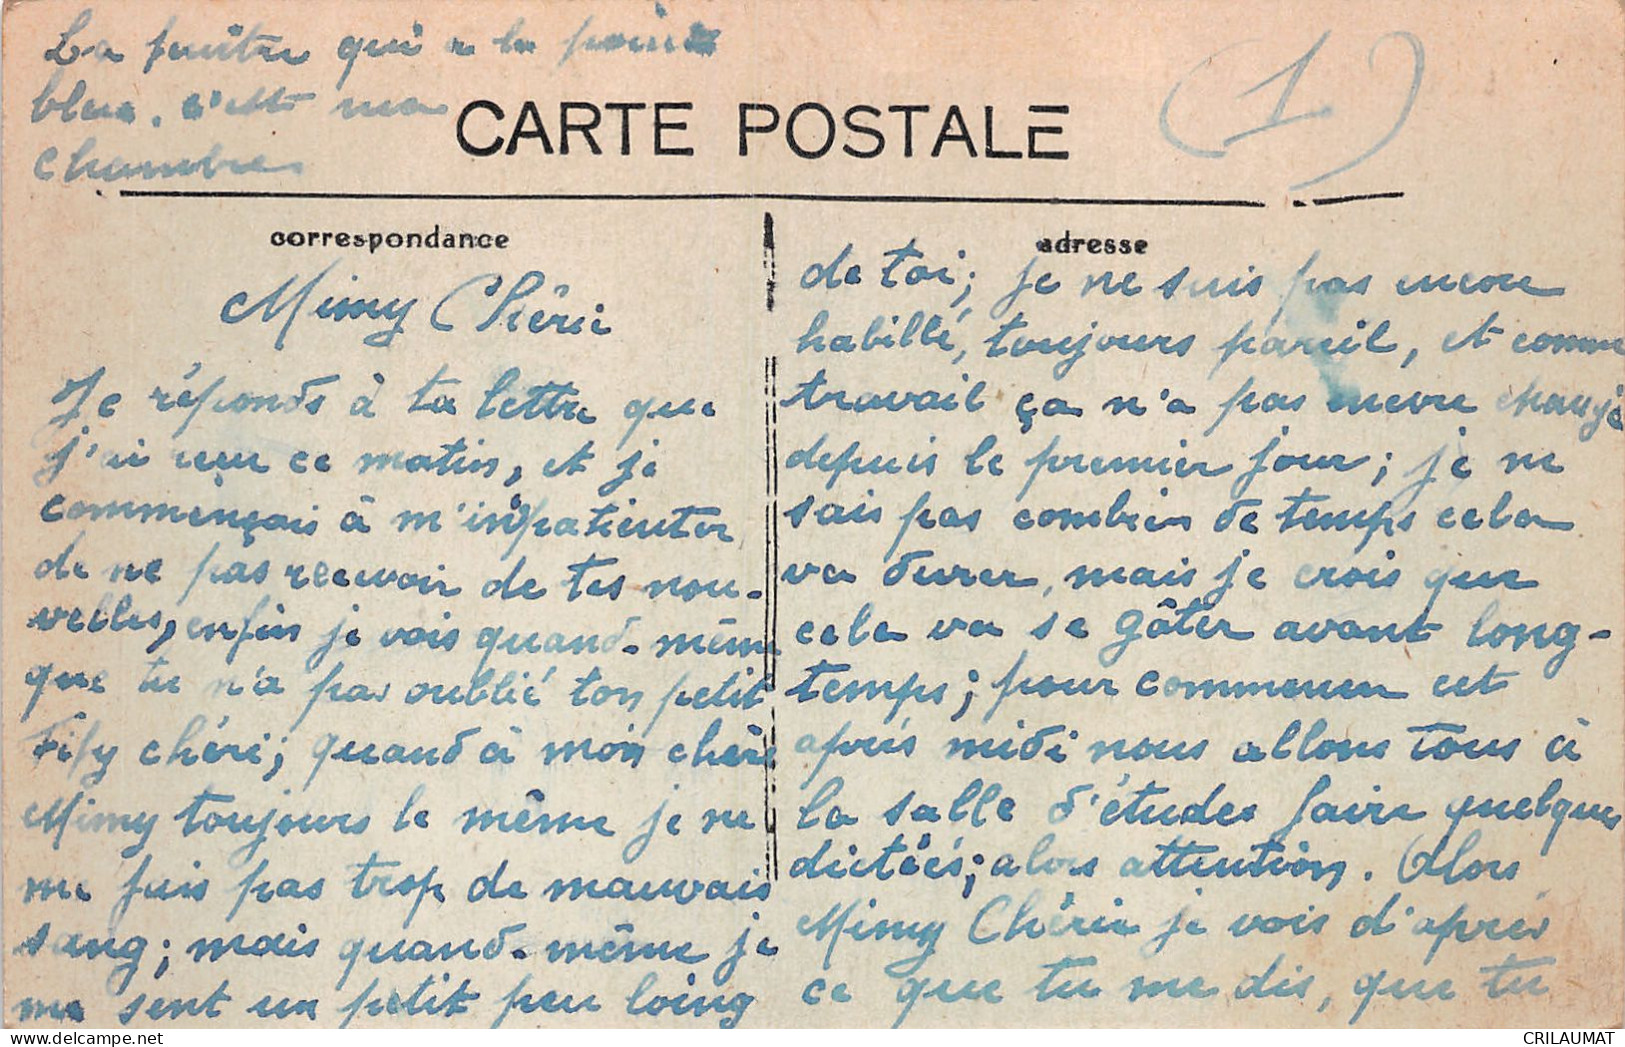 La fenêtre qui a le point
bleu. c'est ma
chambre
CARTE POSTALE
(1)
correspondance
Mimy Chérie
Je réponds à ta lettre que
j'ai reçu ce matin, et je
commençais à m'inpatienter
de ne pas recevoir de tes nou-
velles, enfin je vois quand-même
que tu n'a pas oublié ton petit
Fify chéri; quand à mon chère
Mimy toujours le même je ne
me fais pas trop de mauvais
sang; mais quand-même je
me sent un petit peu loing
adresse
de toi; je ne suis pas encore
habillé, toujours pareil, et comme
travail ça n'a pas encore changé
depuis le premier jour; je ne
sais pas combien de temps cela
va durer, mais je crois que
cela va se gâter avant long-
temps; pour commencer cet
après midi nous allons tous à
la salle d'études faire quelques
dictées; alors attention. Alors
Mimy Chérie je vois d'après
ce que tu me dis, que tu
CRILAUMAT